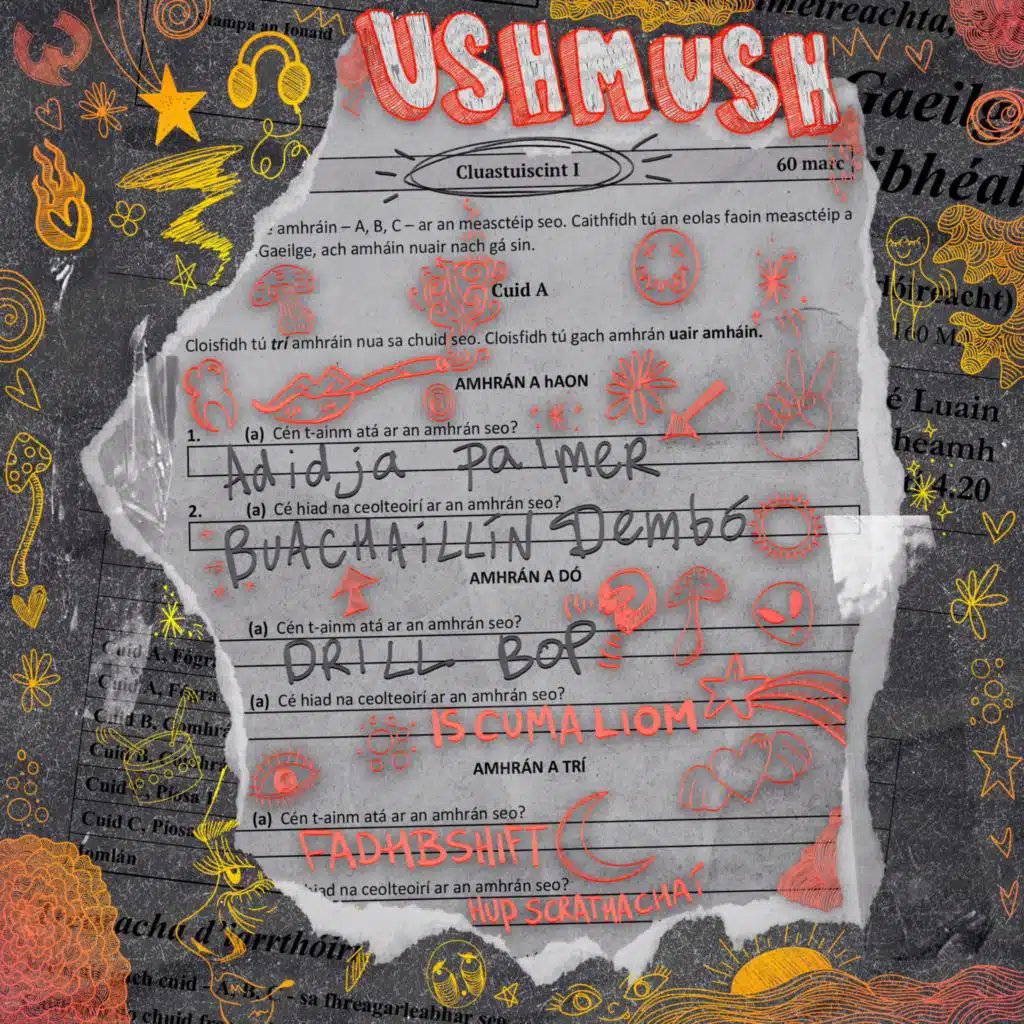 Stampa an Ionaid
USHMUSH
Gaeilg
Cluastuiscint I
60 marc
amhráin – A, B, C – ar an measctéip seo. Caithfidh tú an eolas faoin measctéip a
Gaeilge, ach amháin nuair nach gá sin.
Cuid A
Cloisfidh tú trí amhráin nua sa chuid seo. Cloisfidh tú gach amhrán uair amháin.
160 M
AMHRÁN A hAON
é Luain
1. (a) Cén t-ainm atá ar an amhrán seo?
heamh
Adidja palmer
4.20
2. (a) Cé hiad na ceolteoirí ar an amhrán seo?
BUACHAILLÍN Dembó
AMHRÁN A DÓ
(a) Cén t-ainm atá ar an amhrán seo?
Cuid A, Fógr
DRILL BOP
Cuid A, Fógra
(a) Cé hiad na ceolteoirí ar an amhrán seo?
Cuid B, Comhra
IS CUMA LIOM
Cuid B, Comhra
AMHRÁN A TRÍ
Cuid C, Píosa 1
(a) Cén t-ainm atá ar an amhrán seo?
Cuid C, Píosa
FADHBSHIFT
Iomlán
hiad na ceolteoirí ar an amhrán seo?
HUP SCRATHACHAÍ
acha d'iarrthóirí
ach cuid - A, B, C - sa fhreagarleabhar seo